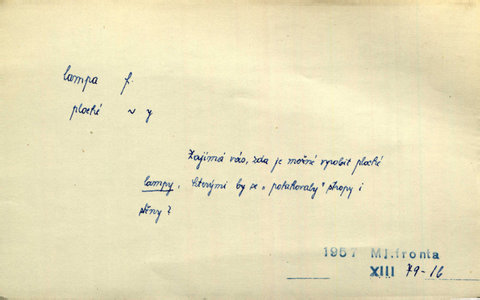 lampa f.
ploché ~ y
Zajímá vás, zda je možné vyrobit ploché
lampy, kterými by se „potahovaly" stropy i
stěny?
1957 Ml.fronta
XIII 79-16